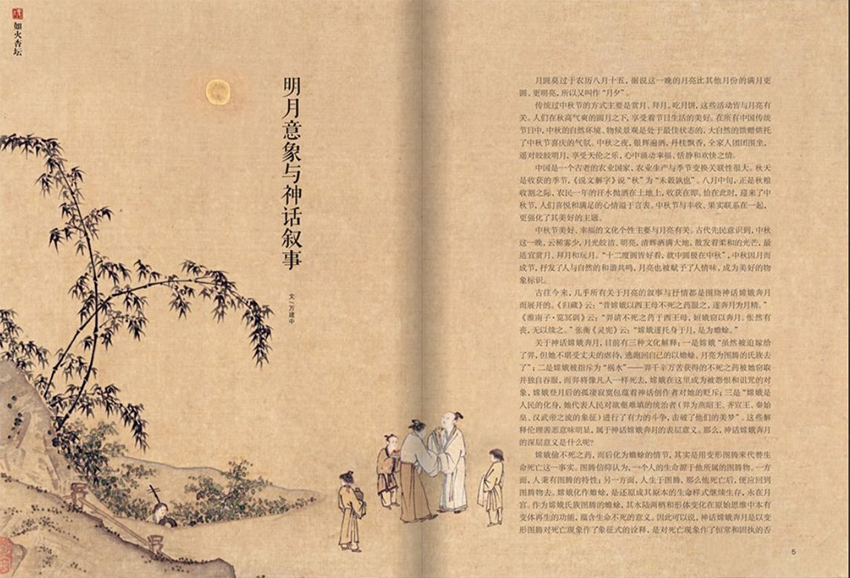 如火杏坛
明月意象与神话叙事
文/万建中
月圆莫过于农历八月十五，据说这一晚的月亮比其他月份的满月更
圆、更明亮，所以又叫作“月夕”。
传统过中秋节的方式主要是赏月、拜月、吃月饼，这些活动皆与月亮有
关。人们在秋高气爽的圆月之下，享受着节日生活的美好。在所有中国传统
节日中，中秋的自然环境、物候景观是处于最佳状态的，大自然的馈赠烘托
了中秋节喜庆的气氛。中秋之夜，银辉遍洒，丹桂飘香，全家人团团围坐，
遥对皎皎明月，享受天伦之乐，心中涌动幸福、恬静和欢快之情。
中国是一个古老的农业国家，农业生产与季节变换关联性很大。秋天
是收获的季节，《说文解字》说“秋”为“禾谷孰也”。八月中旬，正是秋粮
收割之际，农民一年的汗水抛洒在土地上，收获在即。恰在此时，迎来了中
秋节，人们喜悦和满足的心情溢于言表。中秋节与丰收、果实联系在一起，
更强化了其美好的主题。
中秋节美好、幸福的文化个性主要与月亮有关。古代先民意识到，中秋
这一晚，云稀雾少，月光皎洁、明亮，清辉洒满大地，散发着柔和的光芒，最
适宜赏月、拜月和玩月。“十二度圆皆好看，就中圆极在中秋”，中秋因月而
成节，抒发了人与自然的和谐共鸣，月亮也被赋予了人情味，成为美好的物
象标识。
古往今来，几乎所有关于月亮的叙事与抒情都是围绕神话嫦娥奔月
而展开的。《归藏》云：“昔嫦娥以西王母不死之药服之，遂奔月为月精。”
《淮南子·览冥训》云：“羿请不死之药于西王母，姮娥窃以奔月，怅然有
丧，无以续之。”张衡《灵宪》云：“嫦娥遂托身于月，是为蟾蜍。”
关于神话嫦娥奔月，目前有三种文化解释：一是嫦娥“虽然被迫嫁给
了羿，但她不堪受丈夫的虐待，逃跑回自己的以蟾蜍、月亮为图腾的氏族去
了”；二是嫦娥被指斥为“祸水”——羿千辛万苦获得的不死之药被她窃取
并独自吞服，而羿将像凡人一样死去，嫦娥在这里成为被怨恨和诅咒的对
象，嫦娥登月后的孤凄寂寞包蕴着神话创作者对她的贬斥；三是“嫦娥是
人民的化身，她代表人民对欲壑难填的统治者（羿为燕昭王、齐宣王、秦始
皇、汉武帝之流的象征）进行了有力的斗争，击破了他们的美梦”。这些解
释伦理善恶意味明显，属于神话嫦娥奔月的表层意义。那么，神话嫦娥奔月
的深层意义是什么呢？
嫦娥偷不死之药，而后化为蟾蜍的情节，其实是用变形图腾来代替生
命死亡这一事实。图腾信仰认为，一个人的生命源于他所属的图腾物。一方
面，人秉有图腾的特性；另一方面，人生于图腾，那么他死亡后，便应归到
图腾物去。嫦娥化作蟾蜍，是还原成其原本的生命样式继续生存，永在月
宫。作为嫦娥氏族图腾的蟾蜍，其水陆两栖和形体变化在原始思维中本有
变体再生的功能，蕴含生命不死的意义。因此可以说，神话嫦娥奔月是以变
形图腾对死亡现象作了象征式的诠释，是对死亡现象作了恒常和固执的否
5